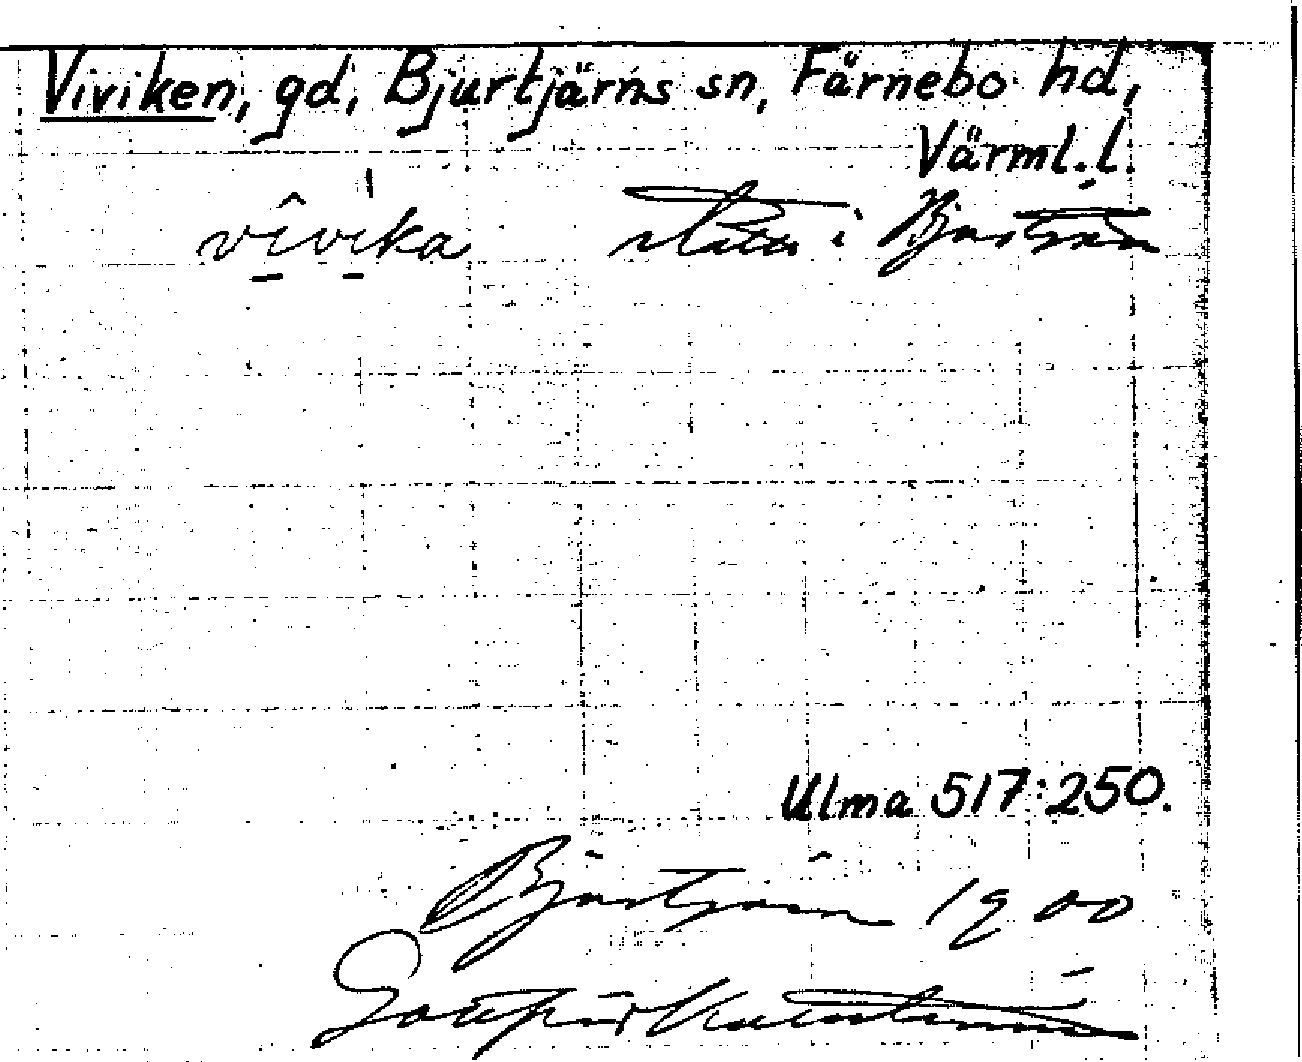 Viviken, gd, Bjurtjärns sn, Färnebo hd,
Värml. l.
vivika i Bjurtjärn
Ulma 517:250.
Bjurtjärn 1900